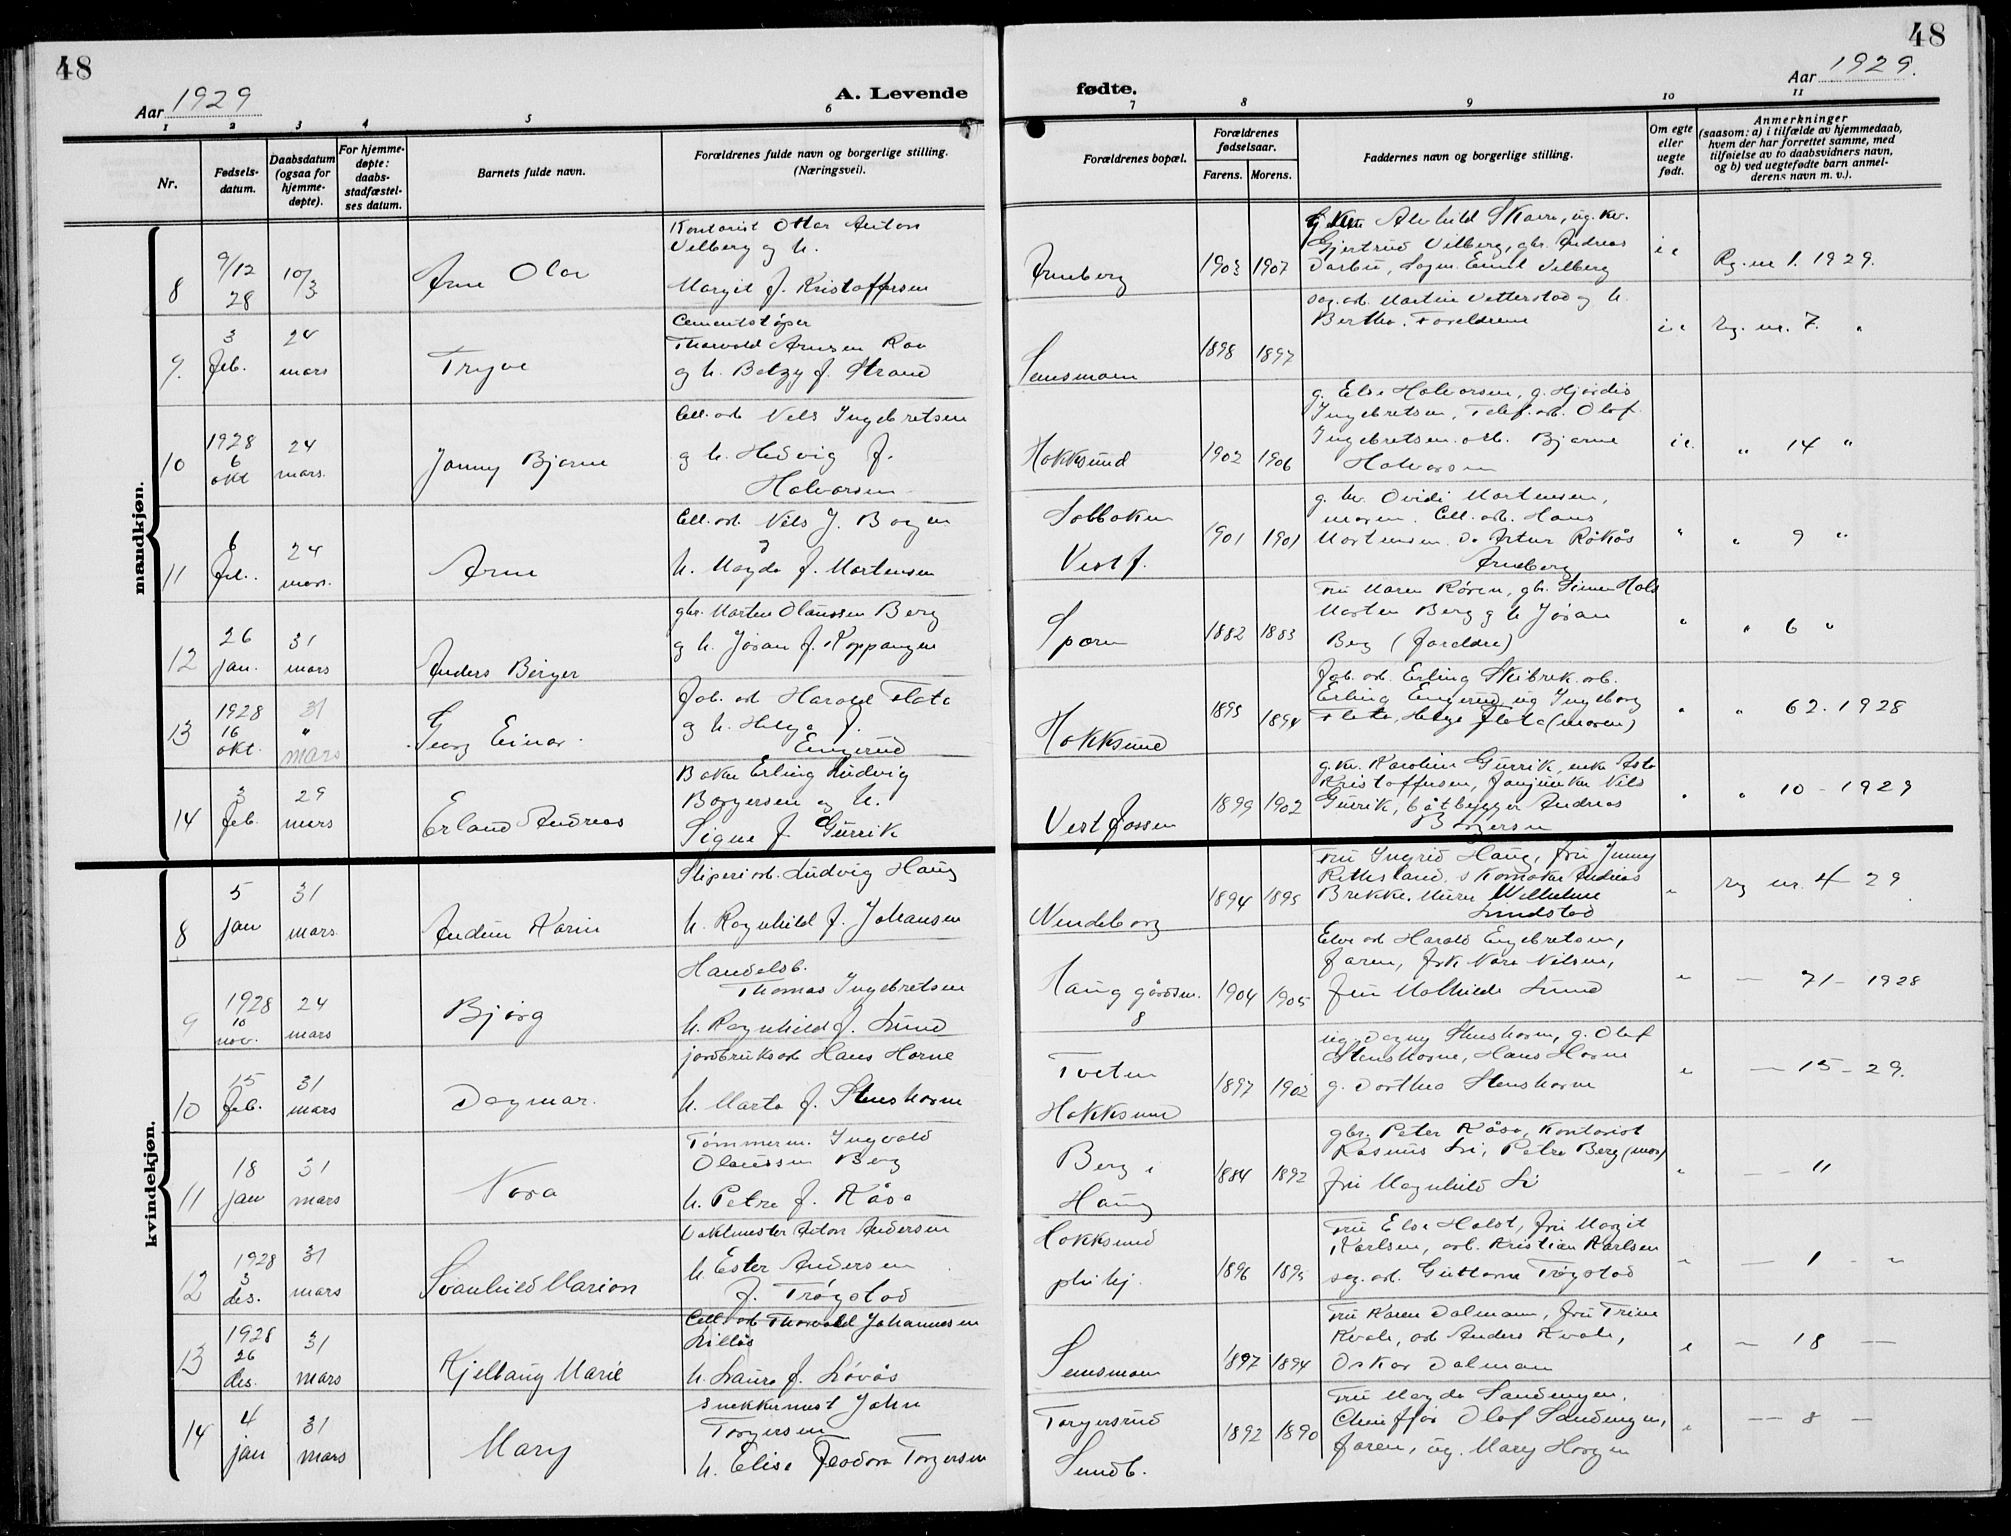 48
Aar 1929
A. Levende
1 2 3 4 5 6
Nr.
Fødsels-
datum.
Daabsdatum
(ogsaa for
hjemme-
døpte).
For hjemme-
døpte:
daabs-
stadfæstel-
ses datum.
Barnets fulde navn.
Forældrenes fulde navn og borgerlige stilling.
(Næringsvei).
mandkjøn.
8
9/12
28
10/3
Arne Olav
Kontorist Ottar Anton
Vilberg og h.
Margit f. Kristoffersen
9.
3
feb.
24
mars
Trygve
Cementstøper
Thorvald Arnesen
og h. Betzy f. Strand
10
1928
6
okt
24
mars.
Jonny Bjarne
Cell. arb Nils Ingebretsen
og h. Hedvig f.
Halvorsen
11
6
feb.
24
mars.
Arne
Cell. arb. Nils J. Borgen
h. Magda f. Mortensen
12
26
jan.
31
mars
Anders Birger
gbr. Morten Olaussen Berg
og h. Josan f. Koppangen
13
1928
16
okt.
31
"
mars
Georg Einar.
Fab. arb Harald Flata
og h. Helga f.
Engerud
14
3
feb.
29
mars
Erland Andreas
Baker Erling Ludvig
Borgersen og h.
Signe f. Gurrik
kvindekjøn.
8
5
jan
31
mars.
Audun Karin
Sliperiarb. Ludvig Haug
h. Ragnhild f. Johansen
9
1928
10
nov.
24
mars
Bjørg
Handelsb.
Thomas Ingebretsen
h. Ragnhild f. Lund
10
15
feb.
31
mars
Dagmar.
jordbruksarb Hans Horne
h. Marta f. Stenshorne
11
18
jan
31
mars
Nora
Tømmerm. Ingvald
Olaussen Berg
h. Petra f. Kåsa
12
1928
3
des.
31
mars
Svanhild Marion
Vaktmester Anton Andersen
h. Ester Andersen
f. Trøgstad
13
1928
26
des.
31
mars
Kjellaug Marie
Cell. arb Thorvald Johannesen
Lillås
h. Laura f. Løvås
14
4
jan
31
mars
Mary
Snekkermest John
Torgersen
h. Elise Teodora Torgersen
48
Aar 1929.
fødte.
7 8 9 10 11
Forældrenes bopæl.
Forældrenes
fødselsaar.
Farens. Morens.
Faddernes navn og borgerlige stilling.
Om egte
eller
uegte
født.
Anmerkninger
(saasom: a) i tilfælde av hjemmedaab,
hvem der har forrettet samme, med
tilføielse av to daabsvidners navn,
og b) ved uegtefødte barn anmel-
derens navn m. v.).
Arneberg
1903 1907
Alvhild Skarre, ug. kv.
Gjertrud Vilberg, gbr. Andreas
Darbu, Emil Vilberg
Rg. nr 1. 1929.
Semsmoen
1898 1897
sag. arb. Martin Vetterstad og h.
Bertha. Foreldrene
Rg. nr. 7. "
Hokksund
1902 1906
g. Else Halvorsen, g. Hjørdis
Ingebretsen, Telef. arb. Olaf
Ingebretsen. arb. Bjarne
Halvorsen
" 14 "
Solbakken
Vestf.
1901 1901
g. kv. Ovidi Mortensen,
moren. Cell. arb. Hans
Mortensen Do Artur Røkås
Arneberg
" " 9 "
1882 1883
Fru Maren Røren, gbr. Simen Hals
Morten Berg og h Josan
Berg (foreldre)
" " 6 "
Hokksund
1895 1894
Fab. arb. Erling Skibrek arb.
Erling Engerud ug Ingeborg
Flata, Helga Flata (moren)
" " 62. 1928
Vestfossen
1899 1902
g. kv. Karoline Gurrik, enke Asta
Kristoffersen, Nils
Gurrik, båtbygger Andreas
Borgersen
" " 10 - 1929
Vendeborg
1894 1895
Fru Ingrid Haug, fru Jenny
skomaker Andreas
Brekke, Wilhelm
Lundstad
" Rg nr. 4 29
Haug gårdsm.
8
1904 1905
Elve arb Harald Engebretsen,
faren, frk Nora Nilsen,
fru Mathilde Lund
" — 71 - 1928
Tveten
Hokksund
1897 1902
ug. Dagny Stenshorne, g. Olaf
Stenshorne, Hans Horne
g. Dorthea Stenshorne
" — 15 - 29.
Berg i
Haug
1884 1892
gbr. Peter Kåsa, Kontorist
Rasmus Li, Petra Berg (mor)
fru Magnhild Li
" — - 11
Hokksund
1896 1895
Fru Else Holst, fru Margit
Karlsen, arb. Kristian Karlsen
sag. arb. Guttorm Trøgstad
" — 1 - "
Semsmoen
1897 1894
Fru Karen Dalmann, fru Trine
Kvale, arb Anders Kvale,
Oskar Dalman
" — 18 —
Torgersrud
Sundb.
1892 1890
Fru Magda Sandengen.
Chauffør Olaf Sandengen,
faren, ug. Mary Horgen
" — 8 —